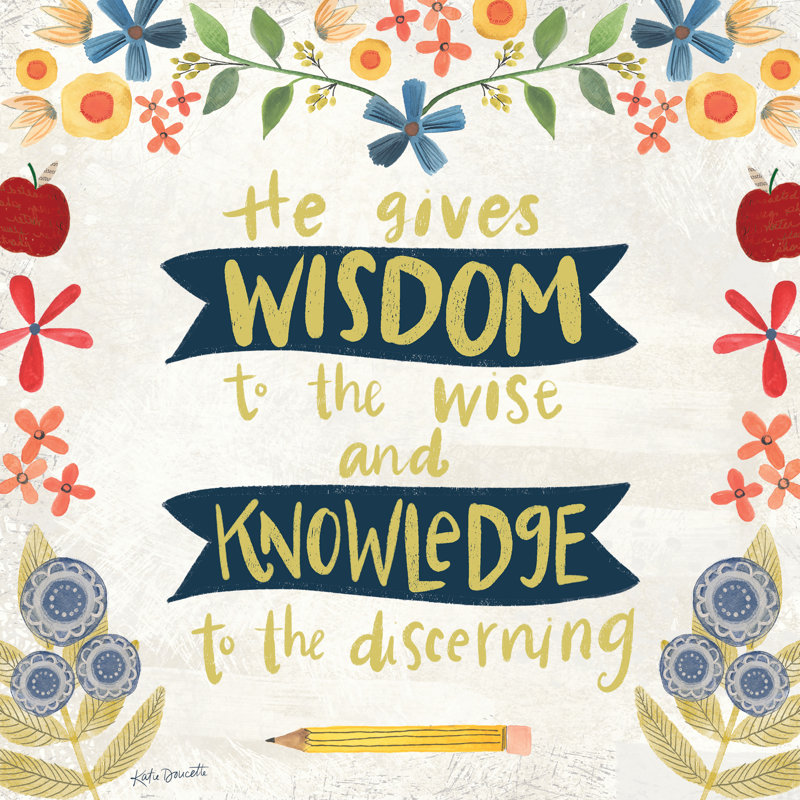 He gives
WISDOM
to the wise
and
KNOWLeDgE
to the discerning
Katie Doucette